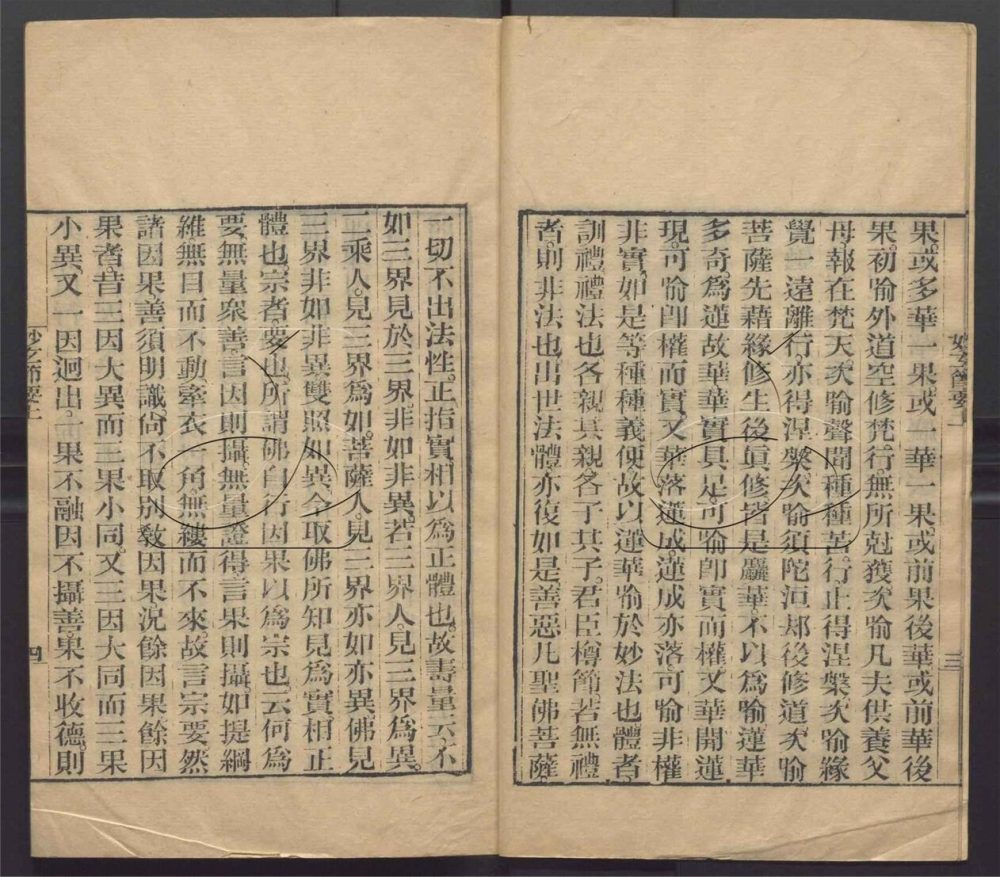 果。或多華一果。或一華一果。或前果後華。或前華後
果。初喻外道空修梵行無所尅獲。次喻凡夫供養父
母報在梵天。次喻聲聞種種苦行止得涅槃。次喻緣
覺一遠離行亦得涅槃。次喻須陀洹却後修道。次喻
菩薩先藉緣修生後眞修。皆是麤華不以爲喻。蓮華
多奇。爲蓮故華華實具足。可喻卽實而權。又華開蓮
現。可喻卽權而實。又華落蓮成。蓮成亦落。可喻非權
非實。如是等種種義便故以蓮華喻於妙法也。體者。
訓禮。禮法也。各親其親各子其子。君臣樽節若無禮
者。則非法也。出世法體亦復如是。善惡凡聖佛菩薩
三
一切不出法性。正指實相以爲正體也。故壽量云不
如三界見於三界非如非異。若三界人。見三界爲異。
二乘人。見三界爲如。菩薩人。見三界亦如亦異。佛見
三界非如非異雙照如異。今取佛所知見爲實相正
體也。宗者。要也。所謂佛自行因果以爲宗也。云何爲
要。無量衆善。言因則攝。無量證得言果則攝。如提綱
維無目而不動。牽衣一角無縷而不來。故言宗要。然
諸因果善須明識。尙不取別敎因果況餘因果。餘因
果者。昔三因大異而三果小同。又三因大同而三果
小異。又一因迥出。一果不融因不攝善。果不收德。則
四